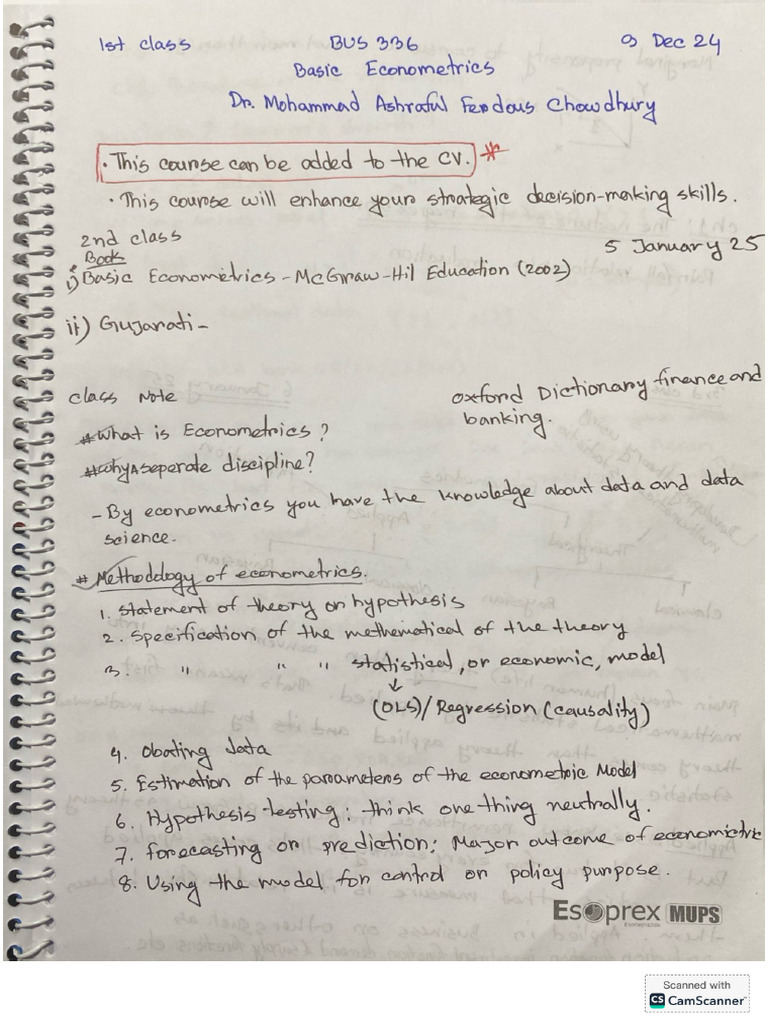 1st class BUS 336 9 Dec 24
Basic Econometrics
Dr. Mohammad Ashraful Ferdous Chowdhury
• This course can be added to the CV. *
• This course will enhance your strategic decision-making skills.
2nd class 5 January 25
Book
i) Basic Econometrics - McGraw-Hil Education (2002)
ii) Gujarati -
class Note Oxford Dictionary finance and
banking.
# What is Econometrics?
# Why A seperate discipline?
- By econometrics you have the knowledge about data and data
science.
# Methodology of econometrics.
1. Statement of theory or hypothesis
2. Specification of the methematical of the theory
3. " " " statistical, or economic, model
↓
(OLS)/Regression (causality)
4. Obating data
5. Estimation of the parameters of the econometric Model
6. Hypothesis testing: think one thing neutrally.
7. forecasting or prediction: Major outcome of econometric
8. Using the model for control or policy purpose.
Esoprex MUPS
Scanned with
CS CamScanner